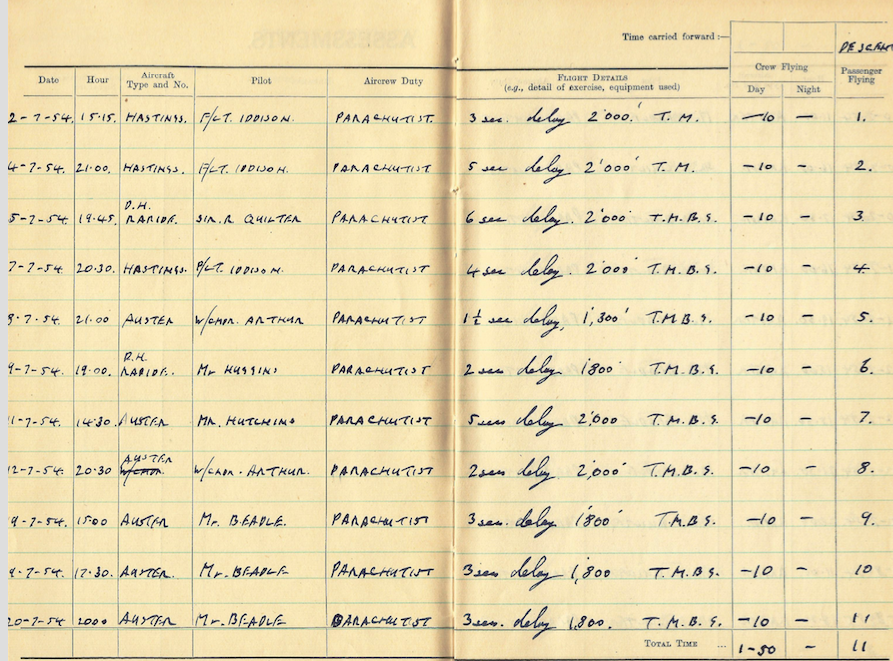 Time carried forward :—
Date Hour Aircraft Type and No. Pilot Aircrew Duty FLIGHT DETAILS (e.g., detail of exercise, equipment used) Crew Flying Day Night Passenger Flying
2-7-54. 15.15. HASTINGS. F/LT. IDDISON. PARACHUTIST. 3 sec. delay 2'000' T. M. —10 — 1.
4-7-54. 21.00. HASTINGS. F/LT. IDDISON. PARACHUTIST 5 sec delay 2'000' T. M. —10 — 2.
D.H.
5-7-54. 19.45. RAPIDE. SIR. R QUILTER PARACHUTIST 6 sec delay. 2'000' T.M.B.S. —10 — 3
7-7-54. 20.30. HASTINGS. F/LT. IDDISON. PARACHUTIST 4 sec delay. 2'000' T.M.B.S. —10 — 4.
-7-54. 21.00 AUSTER W/CMDR. ARTHUR PARACHUTIST 1½ sec delay, 1,300' T.M.B.S. —10 — 5.
D.H.
9-7-54. 19.00. RAPIDE. Mr HUGGINS PARACHUTIST 2 sec delay 1'800' T.M.B.S. —10 — 6.
11-7-54. 14.30. AUSTER MR. HUTCHINS PARACHUTIST 5 sec delay 2'000 T.M.B.S. —10 — 7.
AUSTER
12-7-54. 20.30 W/CMDR. W/CMDR. ARTHUR. PARACHUTIST 2 sec delay 2,000' T.M.B.S. —10 — 8.
9-7-54. 1500 AUSTER Mr. BEADLE. PARACHUTIST 3 sec. delay 1'800' T.M.B.S. —10 — 9.
9-7-54. 17.30. AUSTER. Mr. BEADLE PARACHUTIST 3 sec delay 1,800 T.M.B.S. —10 — 10
20-7-54 2000 AUSTER Mr. BEADLE PARACHUTIST 3 sec. delay 1,800. T.M.B.S. —10 — 11
TOTAL TIME ... 1-50 - 11